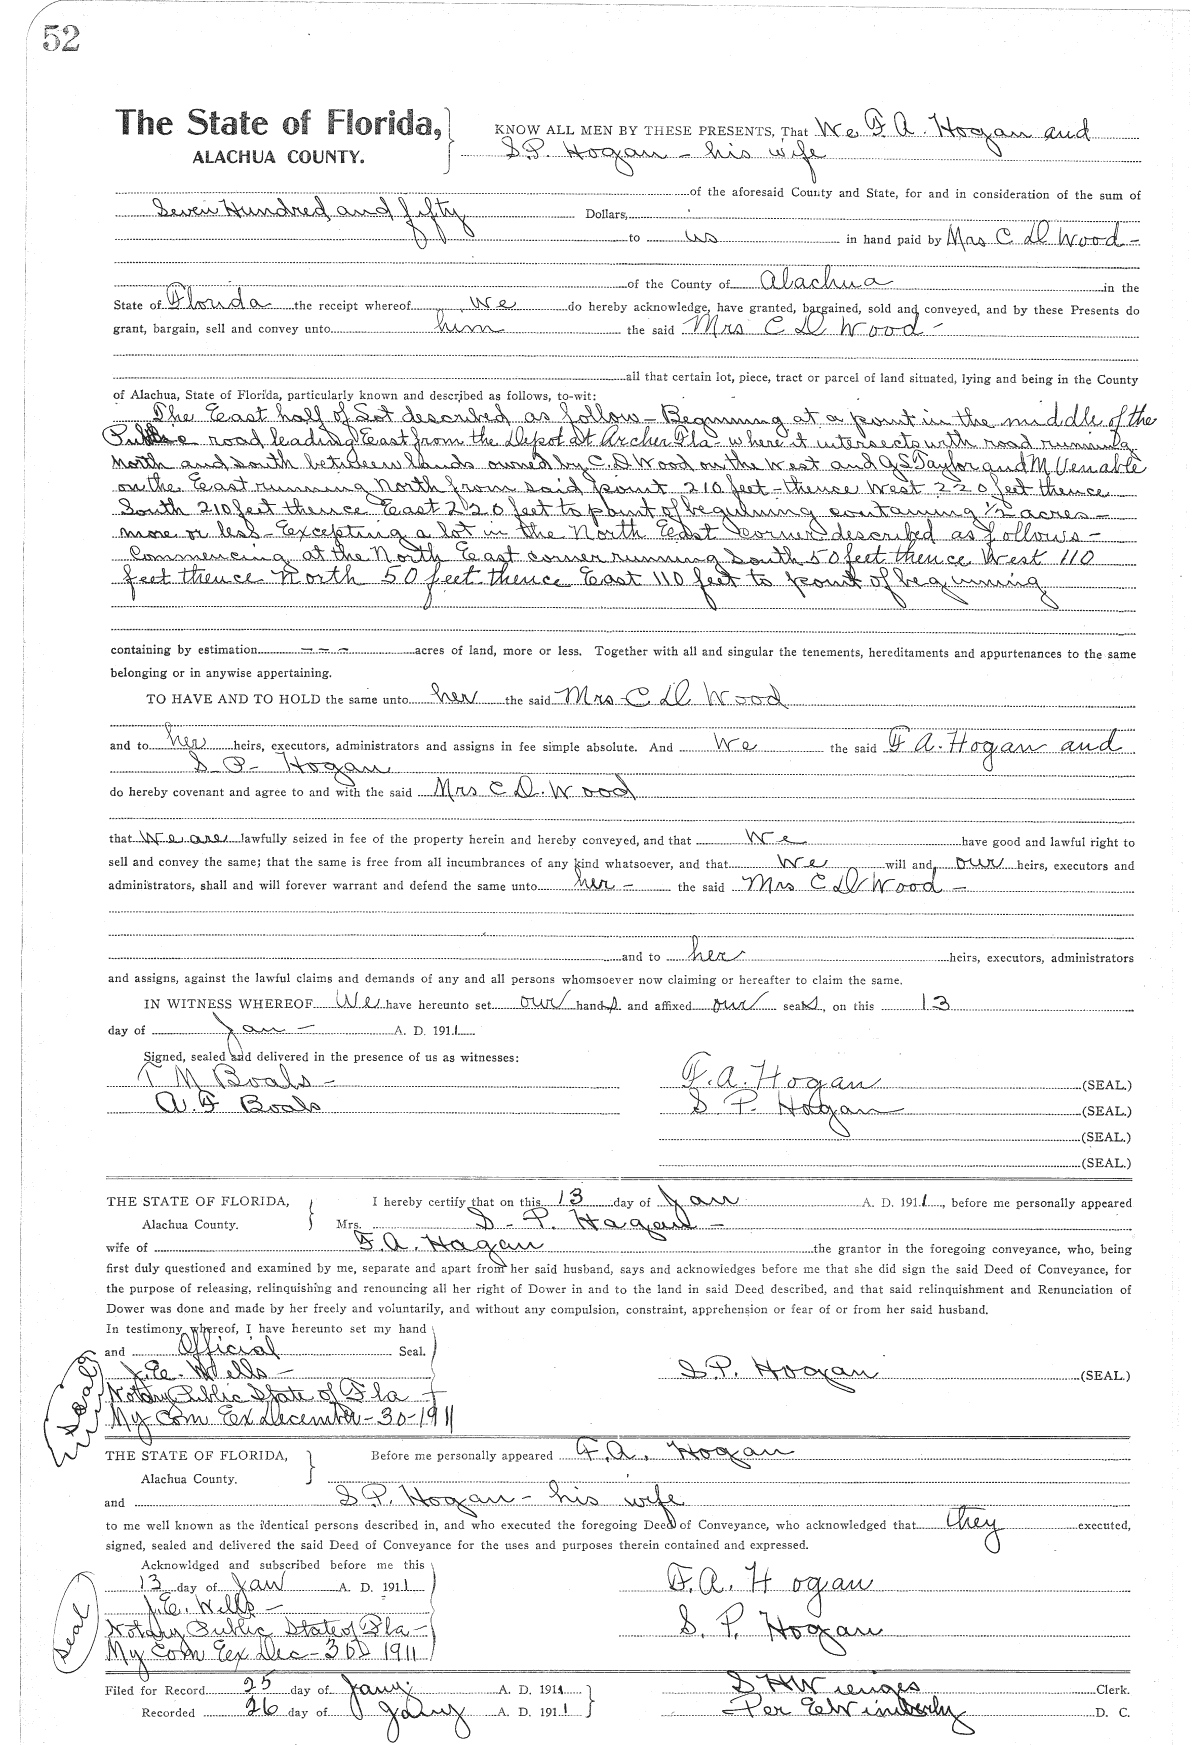 52
The State of Florida, KNOW ALL MEN BY THESE PRESENTS, That We F A. Hogan and
ALACHUA COUNTY. S.P. Hogan - his wife
of the aforesaid County and State, for and in consideration of the sum of
Seven Hundred and fifty Dollars,
to us in hand paid by Mrs C D Wood -
of the County of Alachua in the
State of Florida the receipt whereof We do hereby acknowledge, have granted, bargained, sold and conveyed, and by these Presents do
grant, bargain, sell and convey unto him the said Mrs C D Wood -
all that certain lot, piece, tract or parcel of land situated, lying and being in the County
of Alachua, State of Florida, particularly known and described as follows, to-wit:
The East half of Lot described as follow - Beginning at a point in the middle of the
Public road leading East from the Depot at Archer Fla - where it intersects with road running
North and South between lands owned by C. D Wood on the West and J S Taylor and M Venable
on the East running North from said point 210 feet - thence West 220 feet thence
South 210 feet thence East 220 feet to point of beginning containing 1/2 acres -
more or less - Excepting a lot in the North East corner described as follows -
Commencing at the North East corner running South 50 feet thence West 110
feet thence North 50 feet thence East 110 feet to point of beginning
containing by estimation - - - acres of land, more or less. Together with all and singular the tenements, hereditaments and appurtenances to the same
belonging or in anywise appertaining.
TO HAVE AND TO HOLD the same unto her the said Mrs C D Wood
and to her heirs, executors, administrators and assigns in fee simple absolute. And We the said F A. Hogan and
S P- Hogan
do hereby covenant and agree to and with the said Mrs C D. Wood
that We are lawfully seized in fee of the property herein and hereby conveyed, and that We have good and lawful right to
sell and convey the same; that the same is free from all incumbrances of any kind whatsoever, and that We will and our heirs, executors and
administrators, shall and will forever warrant and defend the same unto her - the said Mrs C D Wood -
and to her heirs, executors, administrators
and assigns, against the lawful claims and demands of any and all persons whomsoever now claiming or hereafter to claim the same.
IN WITNESS WHEREOF We have hereunto set our hands and affixed our seals, on this 13
day of Jan - A. D. 1911
Signed, sealed and delivered in the presence of us as witnesses:
T M Boals - F. A. Hogan (SEAL.)
A. F Boals S P. Hogan (SEAL.)
(SEAL.)
(SEAL.)
THE STATE OF FLORIDA, I hereby certify that on this 13 day of Jan A. D. 1911, before me personally appeared
Alachua County. Mrs. S - P. Hagan -
wife of F. A. Hagan the grantor in the foregoing conveyance, who, being
first duly questioned and examined by me, separate and apart from her said husband, says and acknowledges before me that she did sign the said Deed of Conveyance, for
the purpose of releasing, relinquishing and renouncing all her right of Dower in and to the land in said Deed described, and that said relinquishment and Renunciation of
Dower was done and made by her freely and voluntarily, and without any compulsion, constraint, apprehension or fear of or from her said husband.
In testimony whereof, I have hereunto set my hand
and Official Seal.
J. E. Wells - S.P. Hogan (SEAL)
Seal
Notary Public State of Fla
My Com Ex December - 30 - 1911
THE STATE OF FLORIDA, Before me personally appeared F. A. Hogan
Alachua County.
and S P. Hogan - his wife
to me well known as the identical persons described in, and who executed the foregoing Deed of Conveyance, who acknowledged that they executed,
signed, sealed and delivered the said Deed of Conveyance for the uses and purposes therein contained and expressed.
Acknowldged and subscribed before me this
13 day of Jan A. D. 1911 F. A. Hogan
J. E. Wells -
Seal
Notary Public State of Fla - S. P. Hogan
My Com Ex Dec - 30 1911
Filed for Record 25 day of Jany. A. D. 1911 S H Wienges Clerk.
Recorded 26 day of Jany A. D. 1911 Per E Wimberly D. C.